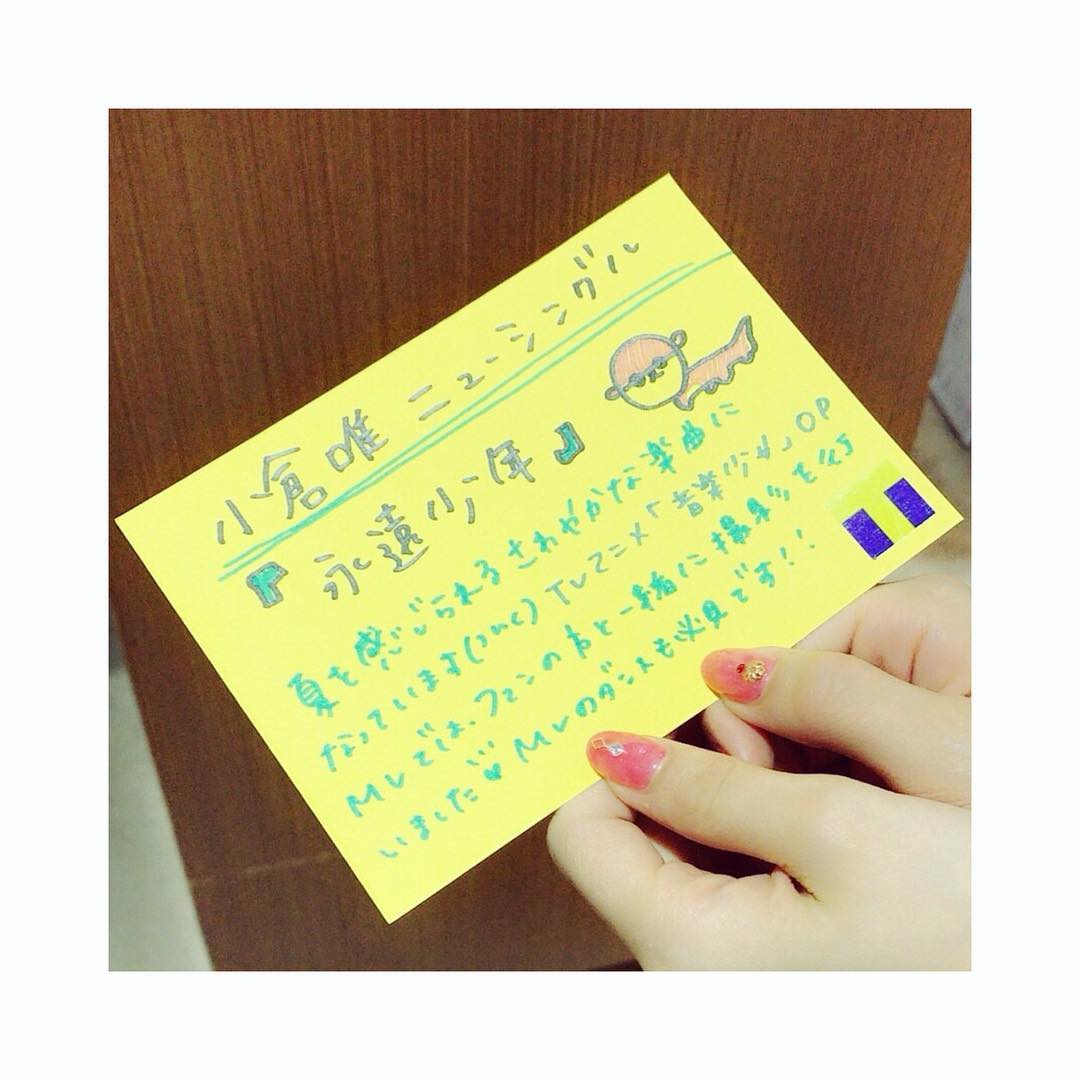 小倉唯 ニューシングル
『永遠少年』
夏を感じられるさわやかな楽曲に
なっています(ω) TVアニメ「音楽少女」OP
MVでは、ファンの方と一緒に撮影を行
いました♡ MVのダンスも必見です!!